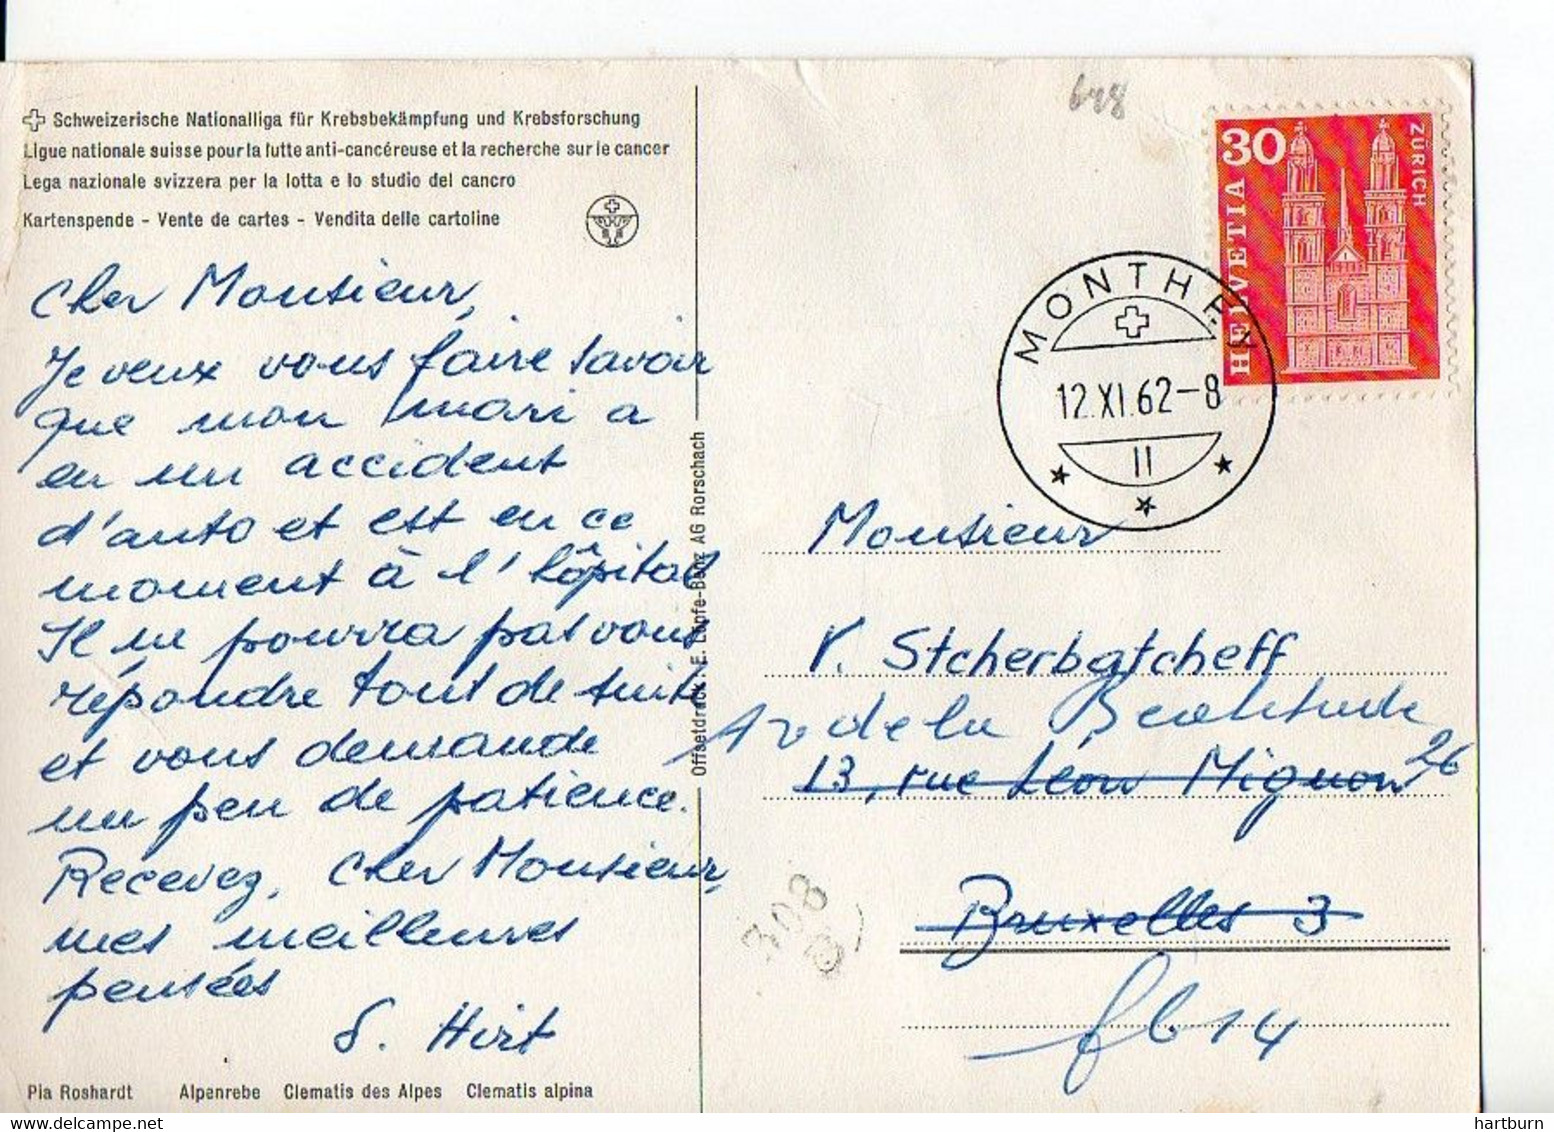 Schweizerische Nationalliga für Krebsbekämpfung und Krebsforschung
Ligue nationale suisse pour la lutte anti-cancéreuse et la recherche sur le cancer
Lega nazionale svizzera per la lotta e lo studio del cancro
Kartenspende - Vente de cartes - Vendita delle cartoline
Cher Monsieur,
Je veux vous faire savoir
que mon mari a
eu un accident
d'auto et est en ce
moment à l'hôpital
Il ne pourra pas vous
répondre tout de suite
et vous demande
un peu de patience.
Recevez, cher Monsieur,
mes meilleures
pensées
S. Hirt
Pia Roshardt Alpenrebe Clematis des Alpes Clematis alpina
Offsetdruck E. Löpfe-Benz AG Rorschach
648
30
ZÜRICH
HELVETIA
MONTHEY
12.XI.62-8
II
Monsieur
V. Stcherbatcheff
Av de la
13, rue Léon Mignon
26
Bruxelles 3
14
308
hartburn